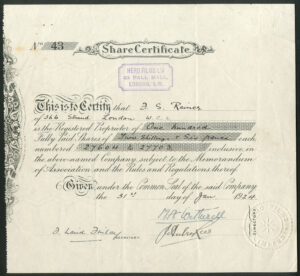 No. 43
Share Certificate.
HERO FILMS LTD
PALL MALL,
LONDON, S.W.
This is to Certify that F. S. Rainer
of 366 Strand London W.C.2
is the Registered Proprietor of One Hundred
Fully Paid Shares of Two Shillings & Six pence each
numbered 27604 to 27703 inclusive, in
the above-named Company, subject to the Memorandum
of Association and the Rules and Regulations thereof.
Given under the Common Seal of the said Company
the 31st day of Jan 1924
DIRECTORS